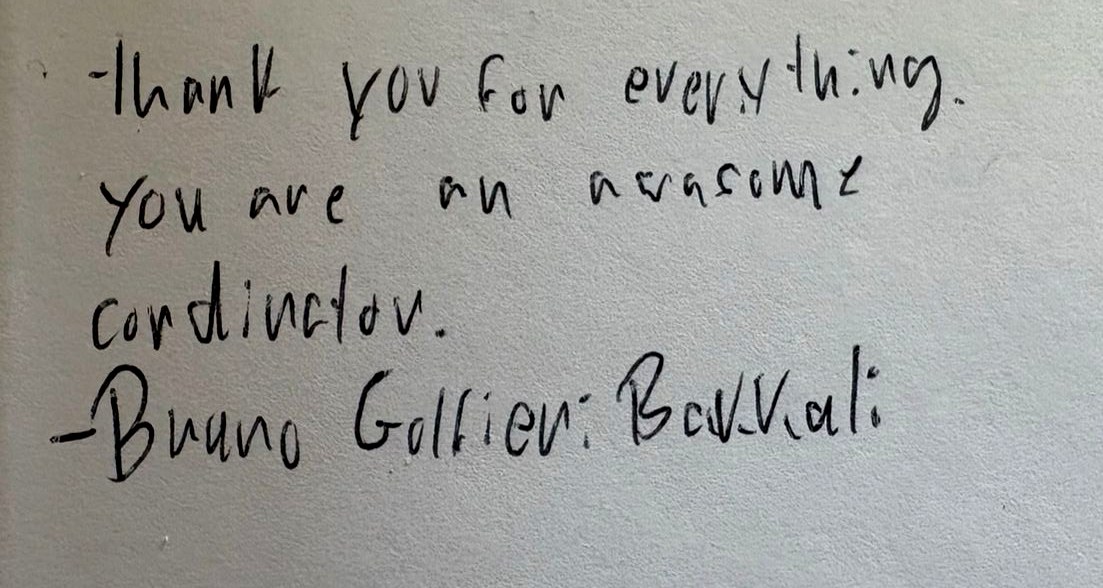 Thank you for everything.
You are an awasome
cordinctor.
-Bruno Golfieri Bakkali